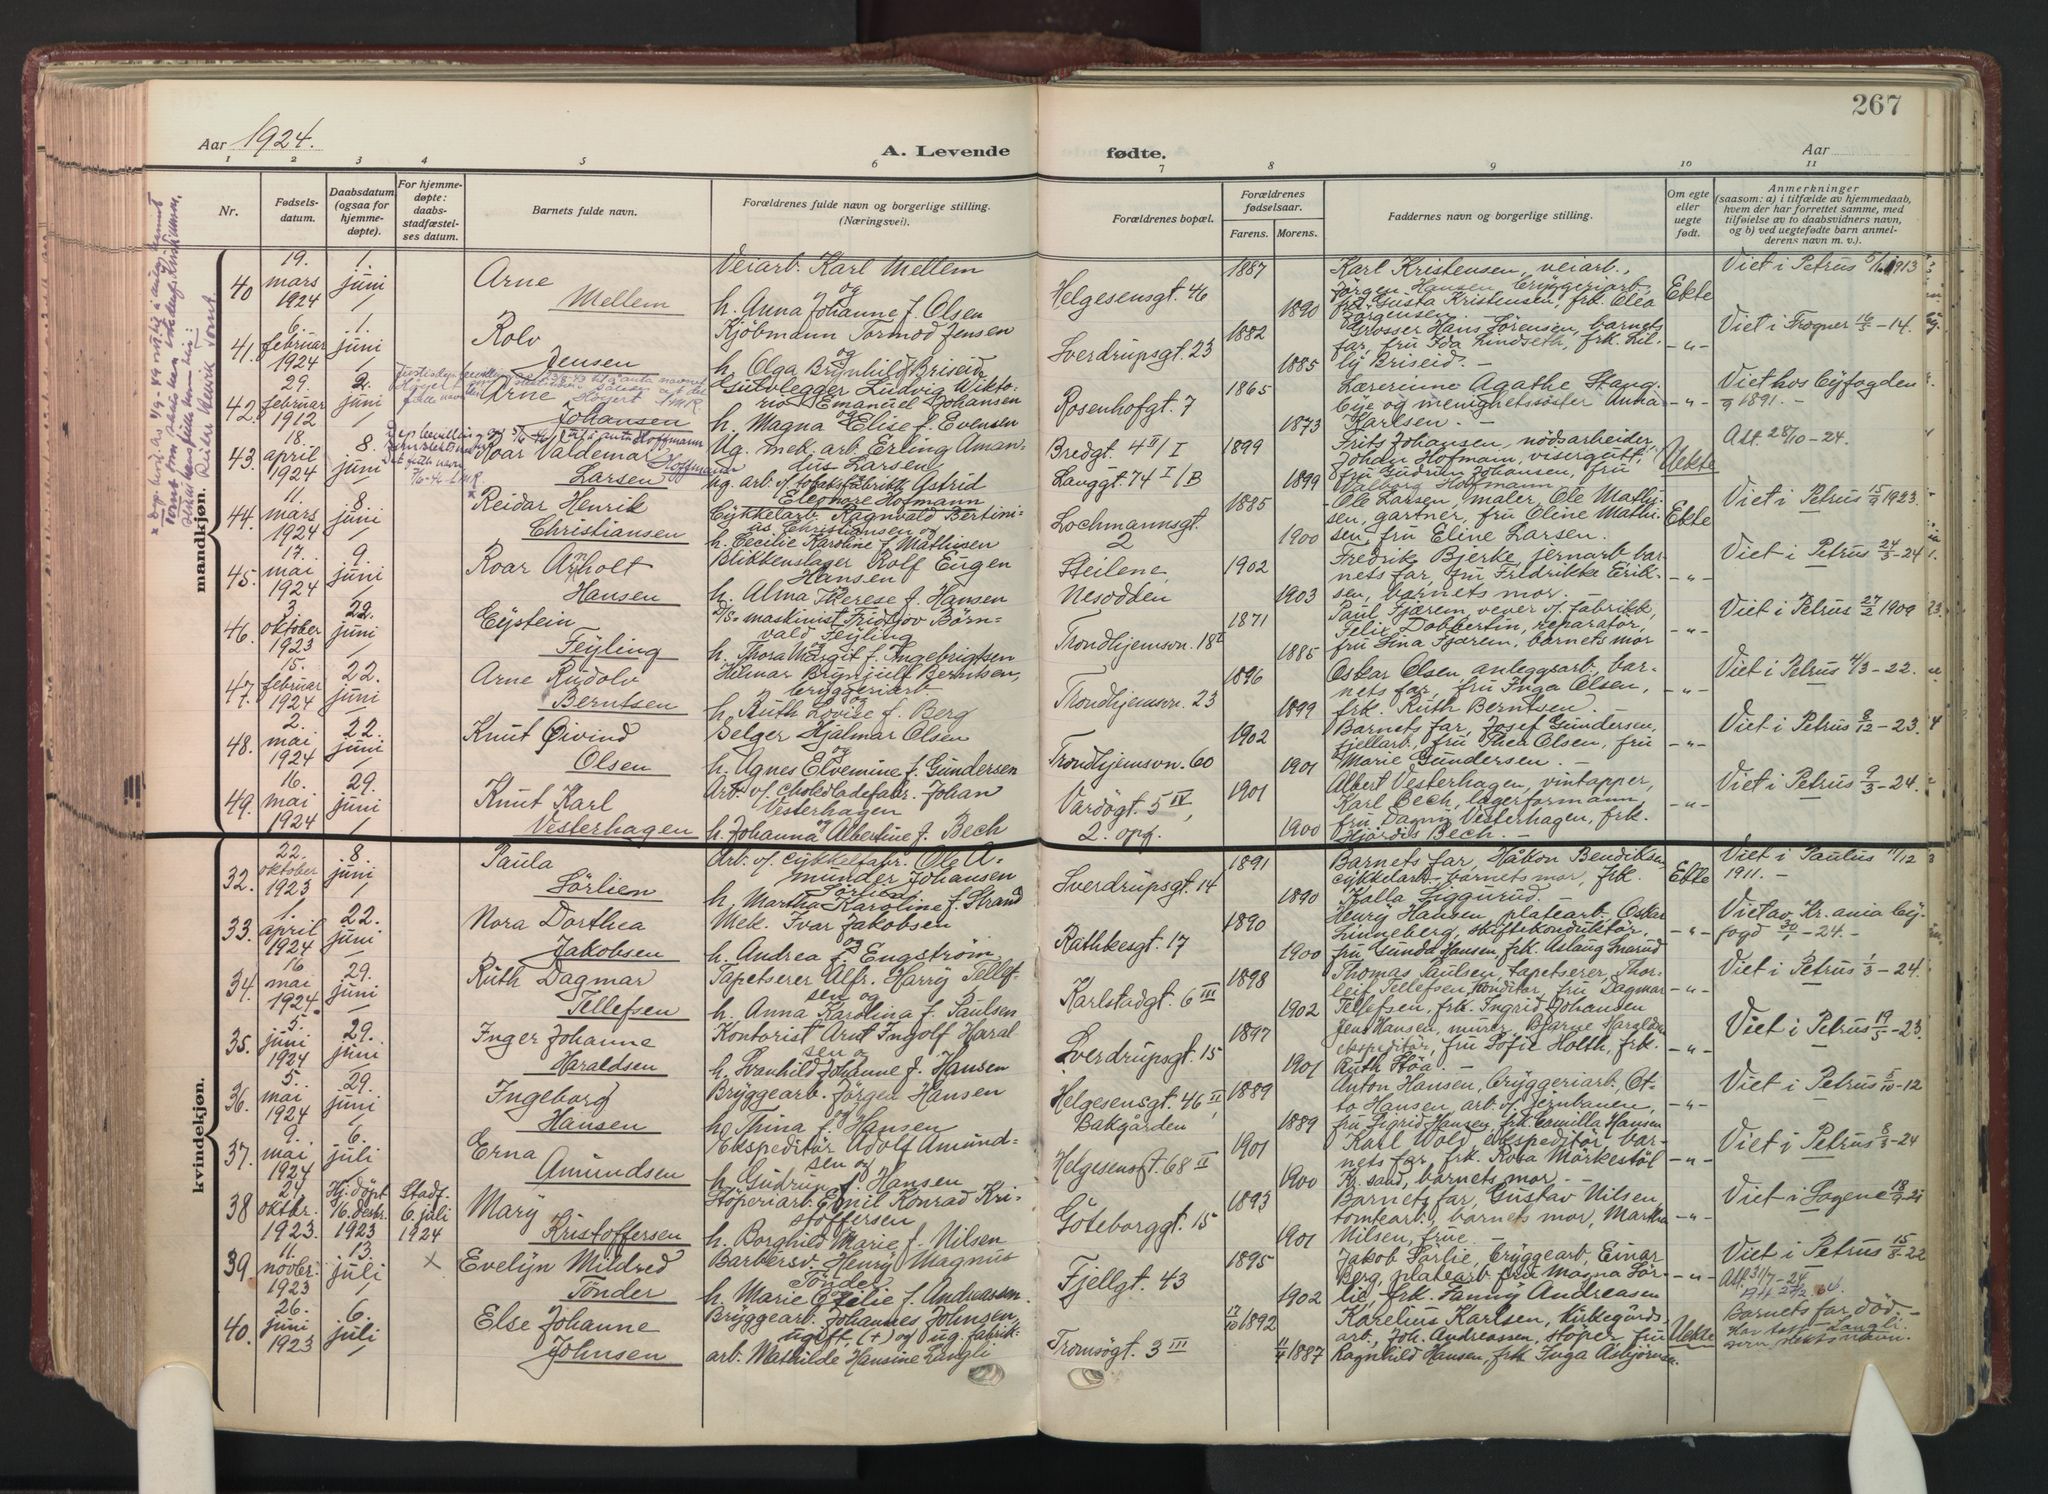 267
Aar 1924.
A. Levende
fødte.
Aar
1 2 3 4 5 6 7 8 9 10 11
Nr.
Fødsels-
datum.
Daabsdatum
(ogsaa for
hjemme-
døpte).
For hjemme-
døpte:
daabs-
stadfæstel-
ses datum.
Barnets fulde navn.
Forældrenes fulde navn og borgerlige stilling.
(Næringsvei).
Forældrenes bopæl.
Forældrenes
fødselsaar.
Farens. Morens.
Faddernes navn og borgerlige stilling.
Om egte
eller
uegte
født.
Anmerkninger
(saasom: a) i tilfælde av hjemmedaab,
hvem der har forrettet samme, med
tilføielse av to daabsvidners navn,
og b) ved uegtefødte barn anmel-
derens navn m. v.).
mandkjøn.
40 19. mars 1924 1. juni Arne Mellem
Veiarb. Karl Mellem
og
h. Anna Johanne f. Olsen
Helgesensgt. 46
1887 1890
Karl Kristensen, veiarb.,
Jørgen Hansen, bryggeriarb.,
fru Gusta Kristensen, frk. Clea
Jørgensen.
Ekte
Viet i Petrus 1913
41. 6. februar 1924 1. juni Rolv Jensen
Kjøbmann Tormod Jensen
og
h. Olga Brynhild Briseid
Sverdrupsgt. 23
1882 1885
Grosser Hans Sörensen, barnets
far, fru Ida Lindseth, frk. Lil-
ly Briseid. –
- " -
Viet i Frogner 16/5 – 14.
42. 29. februar 1912 2. juni Arne Johansen
Sølvlegger Ludvig Wikto-
rio Emanuel Johansen
og
h. Magna Elise f. Evensen
Rosenhofgt. 7
1865 1873
Lærerinne Agathe Stang-
bye og menighetssöster Anna
Karlsen. –
- " -
Viet hos Byfogden
1891. –
43. 18. april 1924 8. juni Roar Valdemar Larsen
Hoffmann
Ug. mek. arb Erling Aman-
dus Larsen
ug. arb. v. tobaksfabrikk Astrid
Eleonore Hofmann
Bredgt. 4 II/I
Langgt. 74 I/B
1899 1899
Frits Johansen, nödsarbeider,
Johan Hofmann, visergutt,
fru Gudrun Johansen, fru
Valborg Hoffmann
Uekte
Att. 28/10 – 24.
44. 11. mars 1924 8. juni Reidar Henrik Christiansen
Cykkelarb. Ragnvald Bertini-
us Christiansen og
h. Cecilie Karoline f. Mathisen
Lochmannsgt.
2
1885 1900
Ole Larsen, maler, Ole Mathi-
sen, gartner, fru Oline Mathi-
sen, fru Eline Larsen.
Ekte
Viet i Petrus 15/9 1923
45. 17. mai 1924 9. juni Roar Arnholt Hansen
Blikkenslager Rolf Eugen
Hansen
h. Alma Therese f. Hansen
Steilene,
Nesodden
1902 1903
Fredrik Bjerke, jernarb. bar-
nets far, fru Fredrikke Erik-
sen, barnets mor.
- " -
Viet i Petrus 24/3 – 24
46. 3. oktober 1923 22. juni Eystein Feyling
D/S-maskinist Fridtjov Börn-
vald Feyling
h. Thora Margit f. Ingebrigtsen
Trondhjemsvn. 18 I
1871 1885
Paul Fjærem, vever v. fabrikk,
Felix Dobbertin, reparatör,
fru Lina Fjærem, barnets mor
- " -
Viet i Petrus 27/2 1909
47. 15. februar 1924 22. juni Arne Rudolv Berntsen
Helmar Brynjulf Berntsen,
bryggeriarb
og
h. Ruth Lovise f. Berg
Trondhjemsvn. 23
1896 1899
Oskar Olsen, anleggsarb, bar-
nets far, fru Inga Olsen,
frk. Ruth Berntsen.
- " -
Viet i Petrus 4/3 – 22.
48. 2. mai 1924 22. juni Knut Øivind Olsen
Selger Hjalmar Olsen
og
h. Agnes Elvemine f. Gundersen
Trondhjemsvn. 60
1902 1901
Barnets far, Josef Gundersen,
fjellarb., fru Thea Olsen, fru
Marie Gundersen. –
- " -
Viet i Petrus 8/12 – 23
49. 16. mai 1924 29. juni Knut Karl Vesterhagen
Arb. v. chokoladefabr. Johan
Vesterhagen
og
h. Johanna Albertine f. Bech
Vardögt. 5 IV,
2. opg.
1901 1900
Albert Vesterhagen, vintapper,
Karl Bech, lagerformann,
fru Dagny Vesterhagen, frk.
Hjördis Bech. –
- " -
Viet i Petrus 9/3 – 24.
kvindekjøn.
32. 22. oktober 1923 8. juni Paula Sörlien
Arb. v. cykkelfabr. Ole A-
munder Johansen
Sörlien
h. Martha Karoline f. Strand
Sverdrupsgt. 14
1891 1890
Barnets far, Håkon Bendiksen
cykkelarb, barnets mor, frk.
Kalla Siggurud.
Ekte
Viet i Paulus 17/12
1911. –
33. 1. april 1924 22. juni Nora Dorthea Jakobsen
Mek. Ivar Jakobsen
og
h. Andrea f. Engström
Rathkesgt. 17
1890 1900
Henry Hansen, platearb. Oskar
Linneberg, skiftekonduktör,
fru Gunda Hansen, frk. Aslaug Snarud
- " -
Viet av Kr.ania By-
fogd 30/1 – 24. –
34. 16 mai 1924 29. juni Ruth Dagmar Tellefsen
Tapetserer Alfr. Harry Tellef-
sen og
h. Anna Karolina f. Paulsen
Karlstadgt. 6 III
1898 1902
Thomas Paulsen, tapetserer, Thor-
leif Tellefsen, konditor, fru Dagmar
Tellefsen, frk. Ingrid Johansen
- " -
Viet i Petrus 1/3 – 24.
35. 5. juni 1924 29. juni Inger Johanne Haraldsen
Kontorist Arnt Ingolf Haral
sen og
h. Svanhild Johanne f. Hansen
Sverdrupsgt. 15
1897 1901
Jens Hansen, murer, Bjarne Haralds
ekspeditör, fru Sofie Holth, frk.
Ruth Stöa. –
- " -
Viet i Petrus 19/5 – 23.
36. 5. mai 1924 29. juni Ingeborg Hansen
Bryggearb. Jörgen Hansen
og
h. Thina f. Hansen
Helgesensgt. 46 II,
Bakgården
1889 1889
Anton Hansen, bryggeriarb. Ot-
to Hansen, arb. v. jernbanen,
fru Sigrid Hansen, frk. Camilla Hansen
- " -
Viet i Petrus 5/10 – 12
37. 9. mai 1924 6. juli Erna Amundsen
Ekspeditör Adolf Amund-
sen og
h. Gudrun f. Hansen
Helgesensgt. 68 II
1901 1900
Karl Wold, ekspeditör, bar-
nets far, frk. Rosa Mörkestöl
Kr.sand, barnets mor. –
- " -
Viet i Petrus 8/3 – 24
38 24 oktbr. 1923 Hj. döpt 16. desbr. 1923 Stadf. 6. juli 1924 Mary Kristoffersen
Stöperiarb. Emil Konrad Kri-
stoffersen
h. Borghild Marie f. Nilsen
Göteborggt. 15
1893 1901
Barnets far, Gustav Nilsen,
tomtearb., barnets mor, Martha
Nilsen, frue. –
- " -
Viet i Sagene
39. 11. novbr. 1923 13. juli × Evelyn Mildred Tönder
Barbersv. Henry Magnus
Tönder
h. Marie Cecilie f. Andreassen.
Fjellgt. 43
1895 1902
Jakob Sörlie, bryggearb, Einar
Berg, platearb. fru Magna Sör-
lie, frk. Fanny Andreasen
- " -
Viet i Petrus 15/8 – 22
Att. 31/7 – 24
40. 26. juni 1923 6. juli Else Johanne Johnsen
Bryggearb. Johannes Johnsen,
ugift, (+) og ug. fabrik-
arb. Mathilde Hansine Langli
Tromsögt. 3 III
17/10 1892 1887
Karelius Karlsen, kirkegårds
arb., Joh. Andreassen, stöper, fru
Ragnhild Hansen, frk Inga Asbjörnsen
Uekte
Barnets far död. –
Har tatt Langli
som slektsnavn.